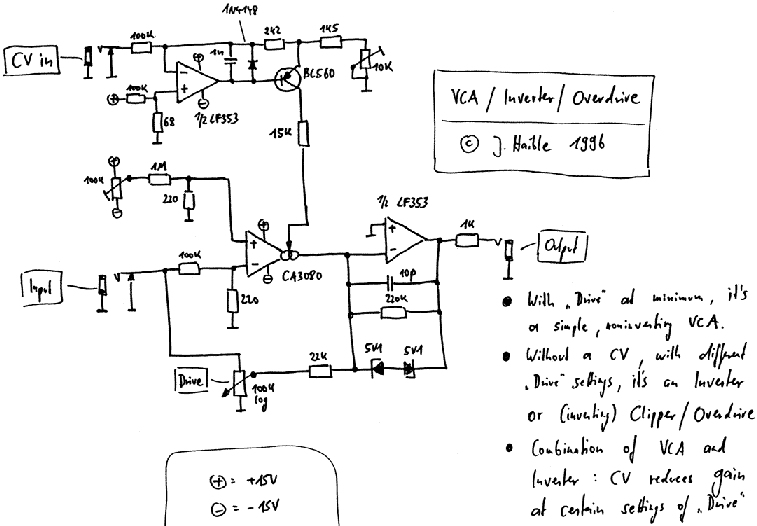 1N4148
100K
2k2
1k5
CV in
1n
10K
BC560
100K
68
1/2 LF353
15K
VCA / Inverter / Overdrive
© J. Haible 1996
100K
1M
220
1/2 LF353
1K
Output
CA3080
100K
Input
220
10p
220K
5V1
5V1
22K
Drive
100K
log
• With „Drive" at minimum, it's
a simple, noninverting VCA.
• Without a CV, with different
„Drive" settings, it's an Inverter
or (inverting) Clipper/Overdrive
• Combination of VCA and
Inverter: CV reduces gain
at certain settings of „Drive"
⊕ = +15V
⊖ = -15V